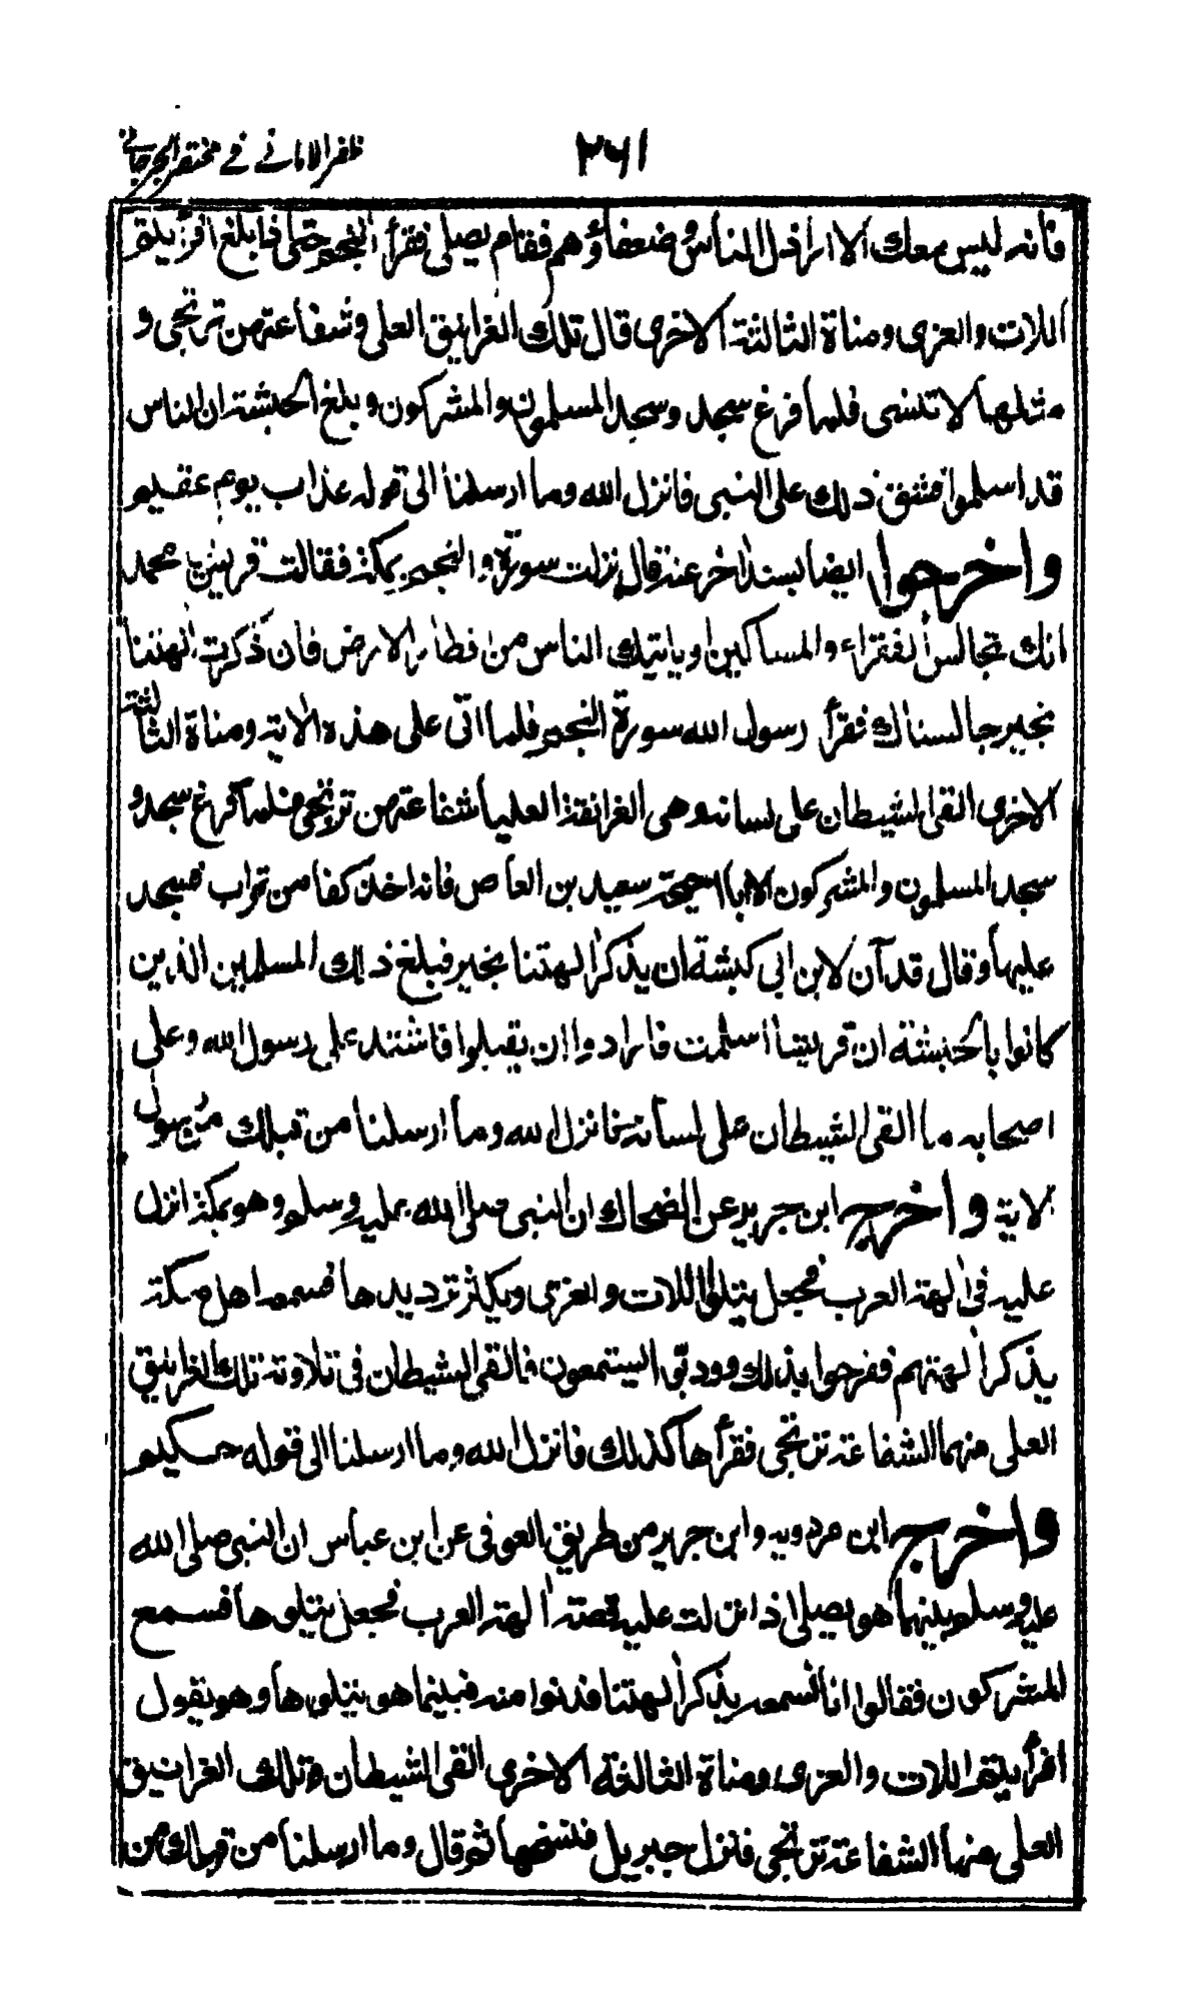 ٢٦١ ظفر الاماني في مختصر الجرجاني
فانه ليس معك الا اراذل الناس وضعفاؤهم فقام يصلي فقرأ النجم حتى اذا بلغ افرأيتم
اللات والعزى ومناة الثالثة الاخرى قال تلك الغرانيق العلى وشفاعتهن ترتجى و
مثلها لا تنسى فلما فرغ سجد وسجد المسلمون والمشركون وبلغ الحبشة ان الناس
قد اسلموا فشق ذلك على النبي فانزل الله وما ارسلنا الى قوله عذاب يوم عقيم
واخرجوا ايضا بسند اخر عنه قال نزلت سورة والنجم بمكة فقالت قريش يا محمد
انك تجالس الفقراء والمساكين وياتيك الناس من اقطار الارض فان ذكرت الهتنا
بخير جالسناك فقرأ رسول الله سورة النجم فلما اتى على هذه الاية ومناة الثالثة
الاخرى القى الشيطان على لسانه وهى الغرانقة العليا شفاعتهن ترتجى فلما فرغ سجد و
سجد المسلمون والمشركون الا ابا احيحة سعيد بن العاص فانه اخذ كفا من تراب فسجد
عليها وقال قد آن لابن ابي كبشة ان يذكر الهتنا بخير فبلغ ذلك المسلمين الذين
كانوا بالحبشة ان قريشا اسلمت فارادوا ان يقبلوا فاشتد على رسول الله وعلى
اصحابه ما القى الشيطان على لسانه فانزل الله وما ارسلنا من قبلك من رسول
الاية واخرج ابن جرير عن الضحاك ان النبي صلى الله عليه وسلم وهو بمكة انزل
عليه في الهة العرب فجعل يتلو اللات والعزى ويكثر ترديدها فسمعه اهل مكة
يذكر الهتهم ففرحوا بذلك ودنوا يستمعون فالقى الشيطان في تلاوته تلك الغرانيق
العلى منها الشفاعة ترتجى فقرأها كذلك فانزل الله وما ارسلنا الى قوله حكيم
واخرج ابن مردويه وابن جرير من طريق العوفي عن ابن عباس ان النبي صلى الله
عليه وسلم بينما هو يصلي اذ انزلت عليه قصة الهة العرب فجعل يتلوها فسمع
المشركون فقالوا انا نسمعه يذكر الهتنا فدنوا منه فبينما هو يتلوها وهو يقول
افرأيتم اللات والعزى ومناة الثالثة الاخرى القى الشيطان تلك الغرانيق
العلى منها الشفاعة ترتجى فنزل جبريل فنسخها ثم قال وما ارسلنا من قبلك من